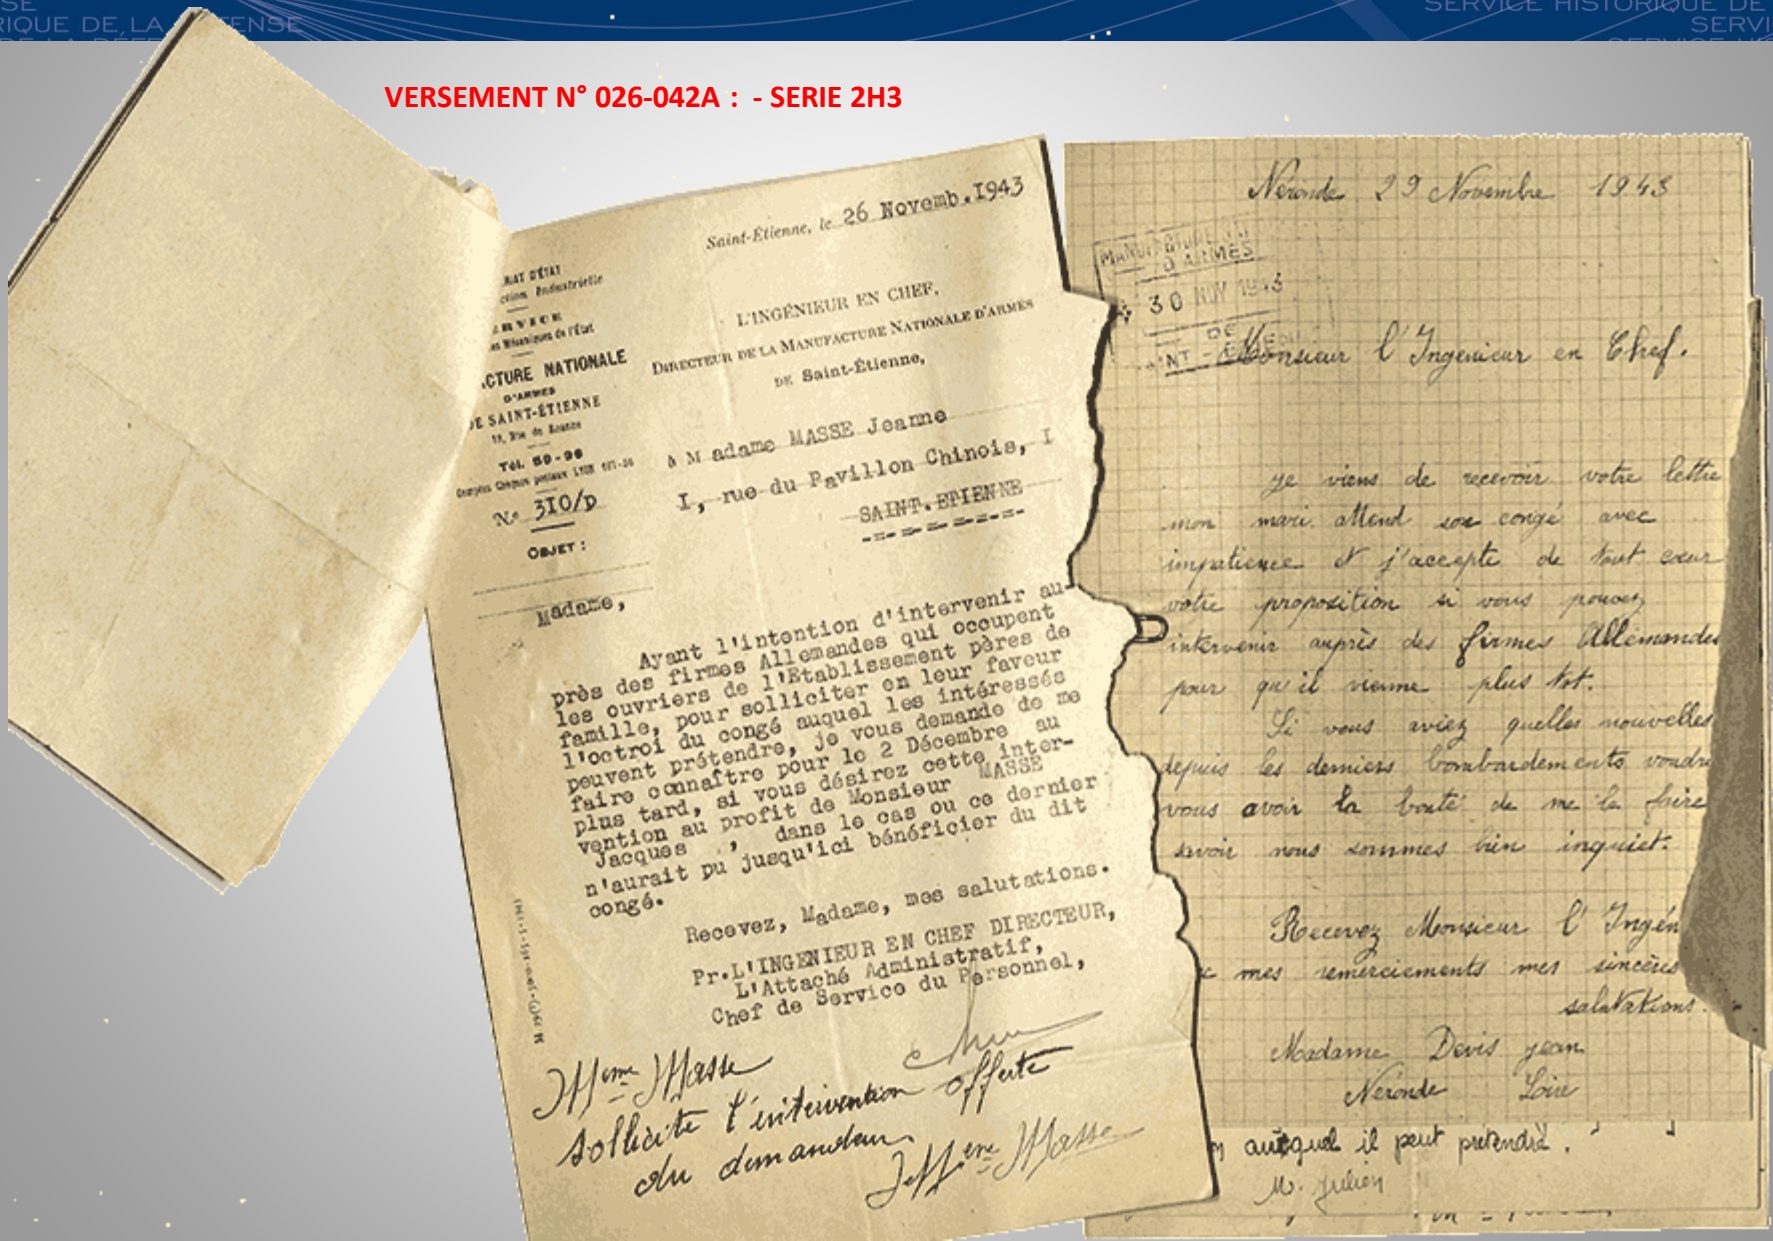 SERVICE HISTORIQUE DE
RIQUE DE LA DÉFENSE
SERVI
VERSEMENT N° 026-042A : - SERIE 2H3
Saint-Étienne, le 26 Novemb.I943
RAT D'ÉTAT
ction Industrielle
ERVICE
es Mécaniques de l'État
CTURE NATIONALE
D'ARMES
DE SAINT-ÉTIENNE
Tél. 50-96
N° 3IO/p
OBJET :
L'INGÉNIEUR EN CHEF,
DIRECTEUR DE LA MANUFACTURE NATIONALE D'ARMES
DE Saint-Étienne,
à M adame MASSE Jeanne
I, rue du Pavillon Chinois, I
SAINT.ETIENNE
-=-=-=-=-=-=-
Madame,
Ayant l'intention d'intervenir au-
près des firmes Allemandes qui occupent
les ouvriers de l'Etablissement pères de
famille, pour solliciter en leur faveur
l'octroi du congé auquel les intéressés
peuvent prétendre, je vous demande de me
faire connaître pour le 2 Décembre au
plus tard, si vous désirez cette inter-
vention au profit de Monsieur MASSE
Jacques , dans le cas ou ce dernier
n'aurait pu jusqu'ici bénéficier du dit
congé.
Recevez, Madame, mes salutations.
Pr.L'INGENIEUR EN CHEF DIRECTEUR,
L'Attaché Administratif,
Chef de Service du Personnel,
Mme Masse
sollicite l'intervention offerte
du demandeur.
Mme Masse
Néronde 29 Novembre 1943
MANUFACTURE
D'ARMES
30 NOV 1943
DE
Monsieur l'Ingenieur en Chef.
je viens de recevoir votre lettre
mon mari attend son congé avec
impatience et j'accepte de tout cœur
votre proposition si vous pouvez
intervenir auprès des firmes Allemandes
pour qu'il vienne plus tot.
Si vous aviez quelles nouvelles
depuis les derniers bombardements voudri
vous avoir la bonté de me le faire
savoir nous sommes bien inquiet.
Recevez Monsieur l'Ingén
mes remerciements mes sincères
salutations.
Madame Devis jean
Néronde Loire
auquel il peut prétendre.
M. Julien